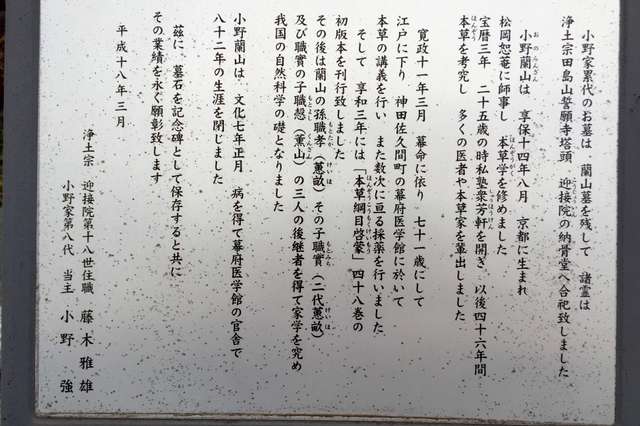 小野家累代のお墓は 蘭山墓を残して 諸霊は
浄土宗田島山誓願寺塔頭 迎接院の納骨堂へ合祀致しました
小野蘭山は 享保十四年八月 京都に生まれ
松岡恕菴に師事し 本草学を修めました
宝暦三年 二十五歳の時私塾衆芳軒を開き 以後四十六年間
本草を考究し 多くの医者や本草家を輩出しました
寛政十一年三月 幕命に依り 七十一歳にして
江戸に下り 神田佐久間町の幕府医学館に於いて
本草の講義を行い また数次に亘る採薬を行いました
そして 享和三年には「本草綱目啓蒙」四十八巻の
初版本を刊行致しました
その後は蘭山の孫職孝(蕙畝)その子職實(二代蕙畝)
及び職實の子職愨(薫山)の三人の後継者を得て家学を究め
我国の自然科学の礎となりました
小野蘭山は 文化七年正月 病を得て幕府医学館の官舎で
八十二年の生涯を閉じました
茲に 墓石を記念碑として保存すると共に
その業績を永ぐ顕彰致します
平成十八年三月
浄土宗 迎接院第十八世住職 藤木雅雄
小野家第八代 当主 小野 強